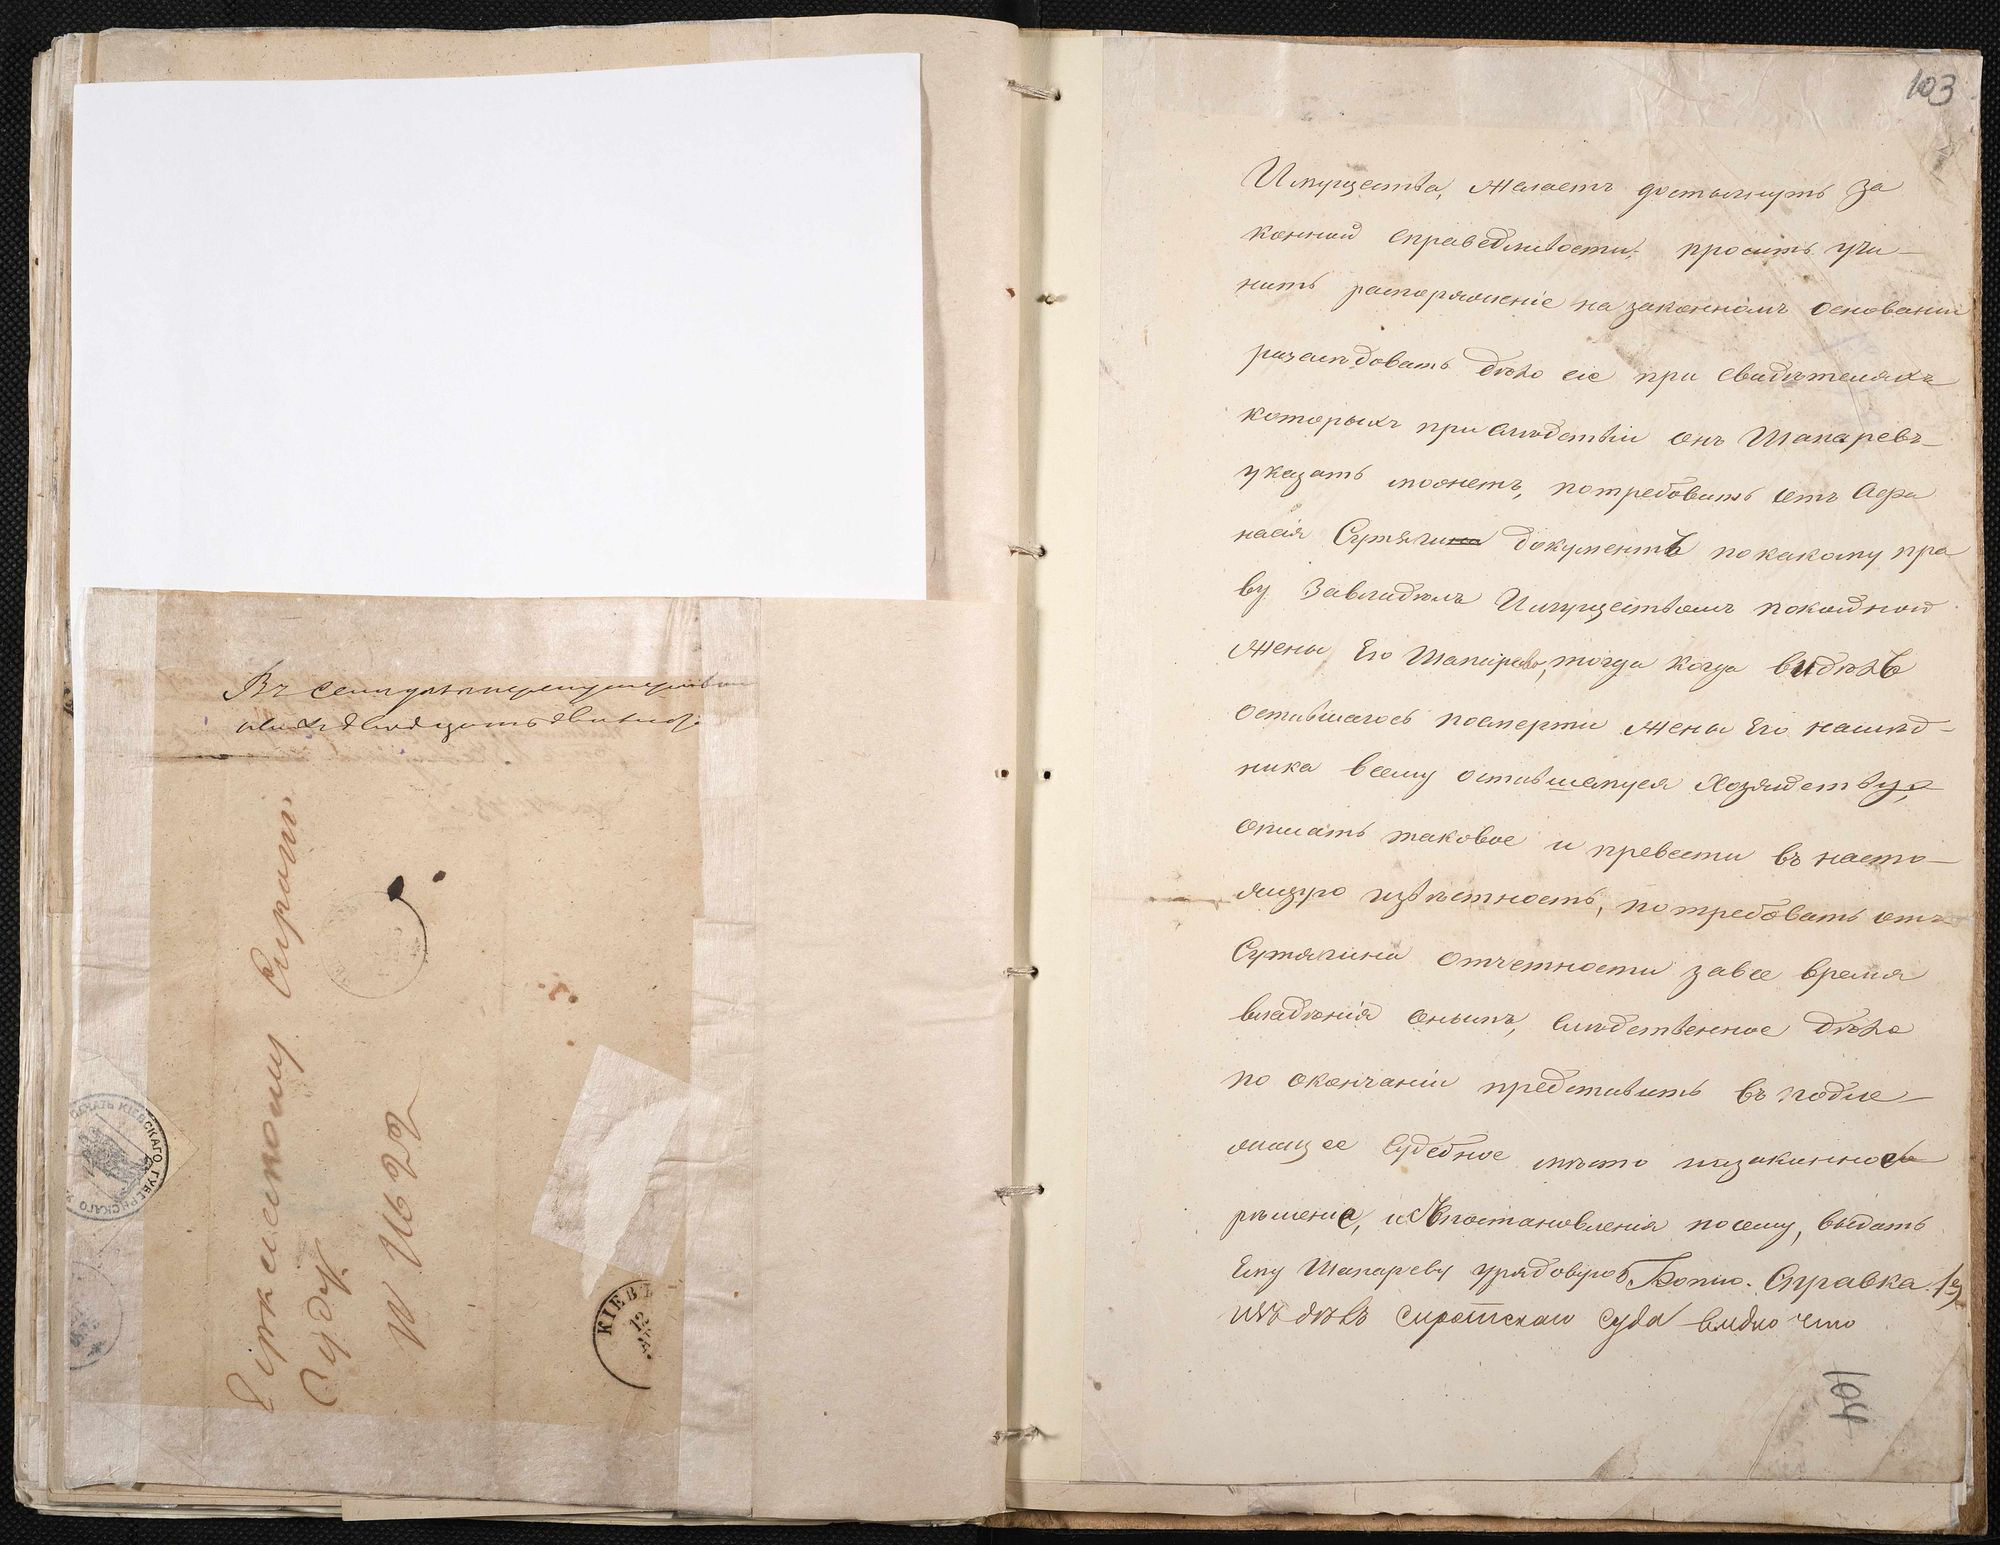 Въ семъ дѣлѣ перенумерован
ныхъ двадцать девять
Сиркискому Сиротс.
Суду
N 1622
ПЕЧАТЬ КІЕВСКАГО ГУБЕРНСКАГО
КІЕВЪ
12
103
Имущества, желаетъ достигнуть за
конной справедливости, проситъ учи-
нить распоряженіе на законномъ основаніи
разслѣдовать дѣло сіе при свидѣтеляхъ
которыхъ при слѣдствіи онъ Шапаревъ
указать можетъ, потребовать отъ Афа
насія Сутягина документъ по какому пра
ву завладѣлъ Имуществомъ покойной
Жены Его Шапарева, тогда когда видѣлъ
оставшагось посмерти Жены Его наслѣд-
ника всему оставшемуся Хозяйству,
описать таковое и превести въ насто-
ящую извѣстность, потребовать отъ
Сутягина отчетности за все время
владѣнія онымъ, слѣдственное дѣло
по окончаніи представить въ подле-
жащее Судебное мѣсто на законное
рѣшеніе, и постановленія посему, выдать
Ему Шапареву урядовую Копію. Справка
изъ дѣлъ сиротскаго суда видно что
104